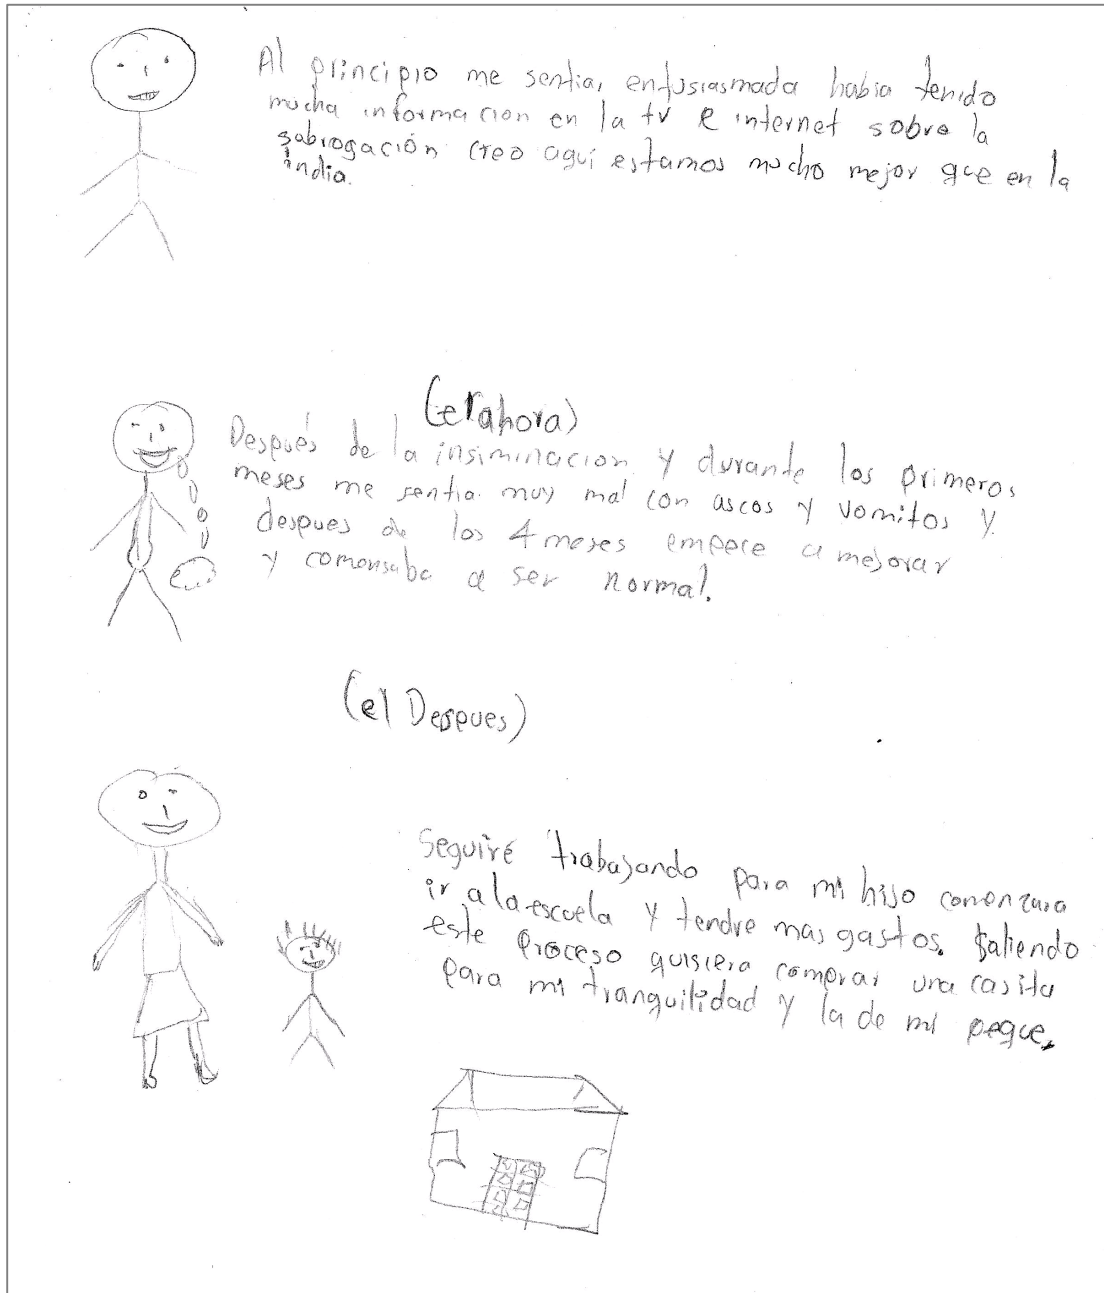 Al principio me sentia, entusiasmada habia tenido
mucha informacion en la tv e internet sobre la
subrogación creo aquí estamos mucho mejor que en la
india.
(el ahora)
Después de la insiminacion y durante los primeros
meses me sentia muy mal con ascos y vomitos y
despues de los 4 meses empece a mejorar
y comensaba a ser normal.
(el Despues)
Seguiré trabajando para mi hijo comenzara
ir a la escuela y tendre mas gastos. Saliendo
este proceso quisiera comprar una casita
para mi tranquilidad y la de mi peque.